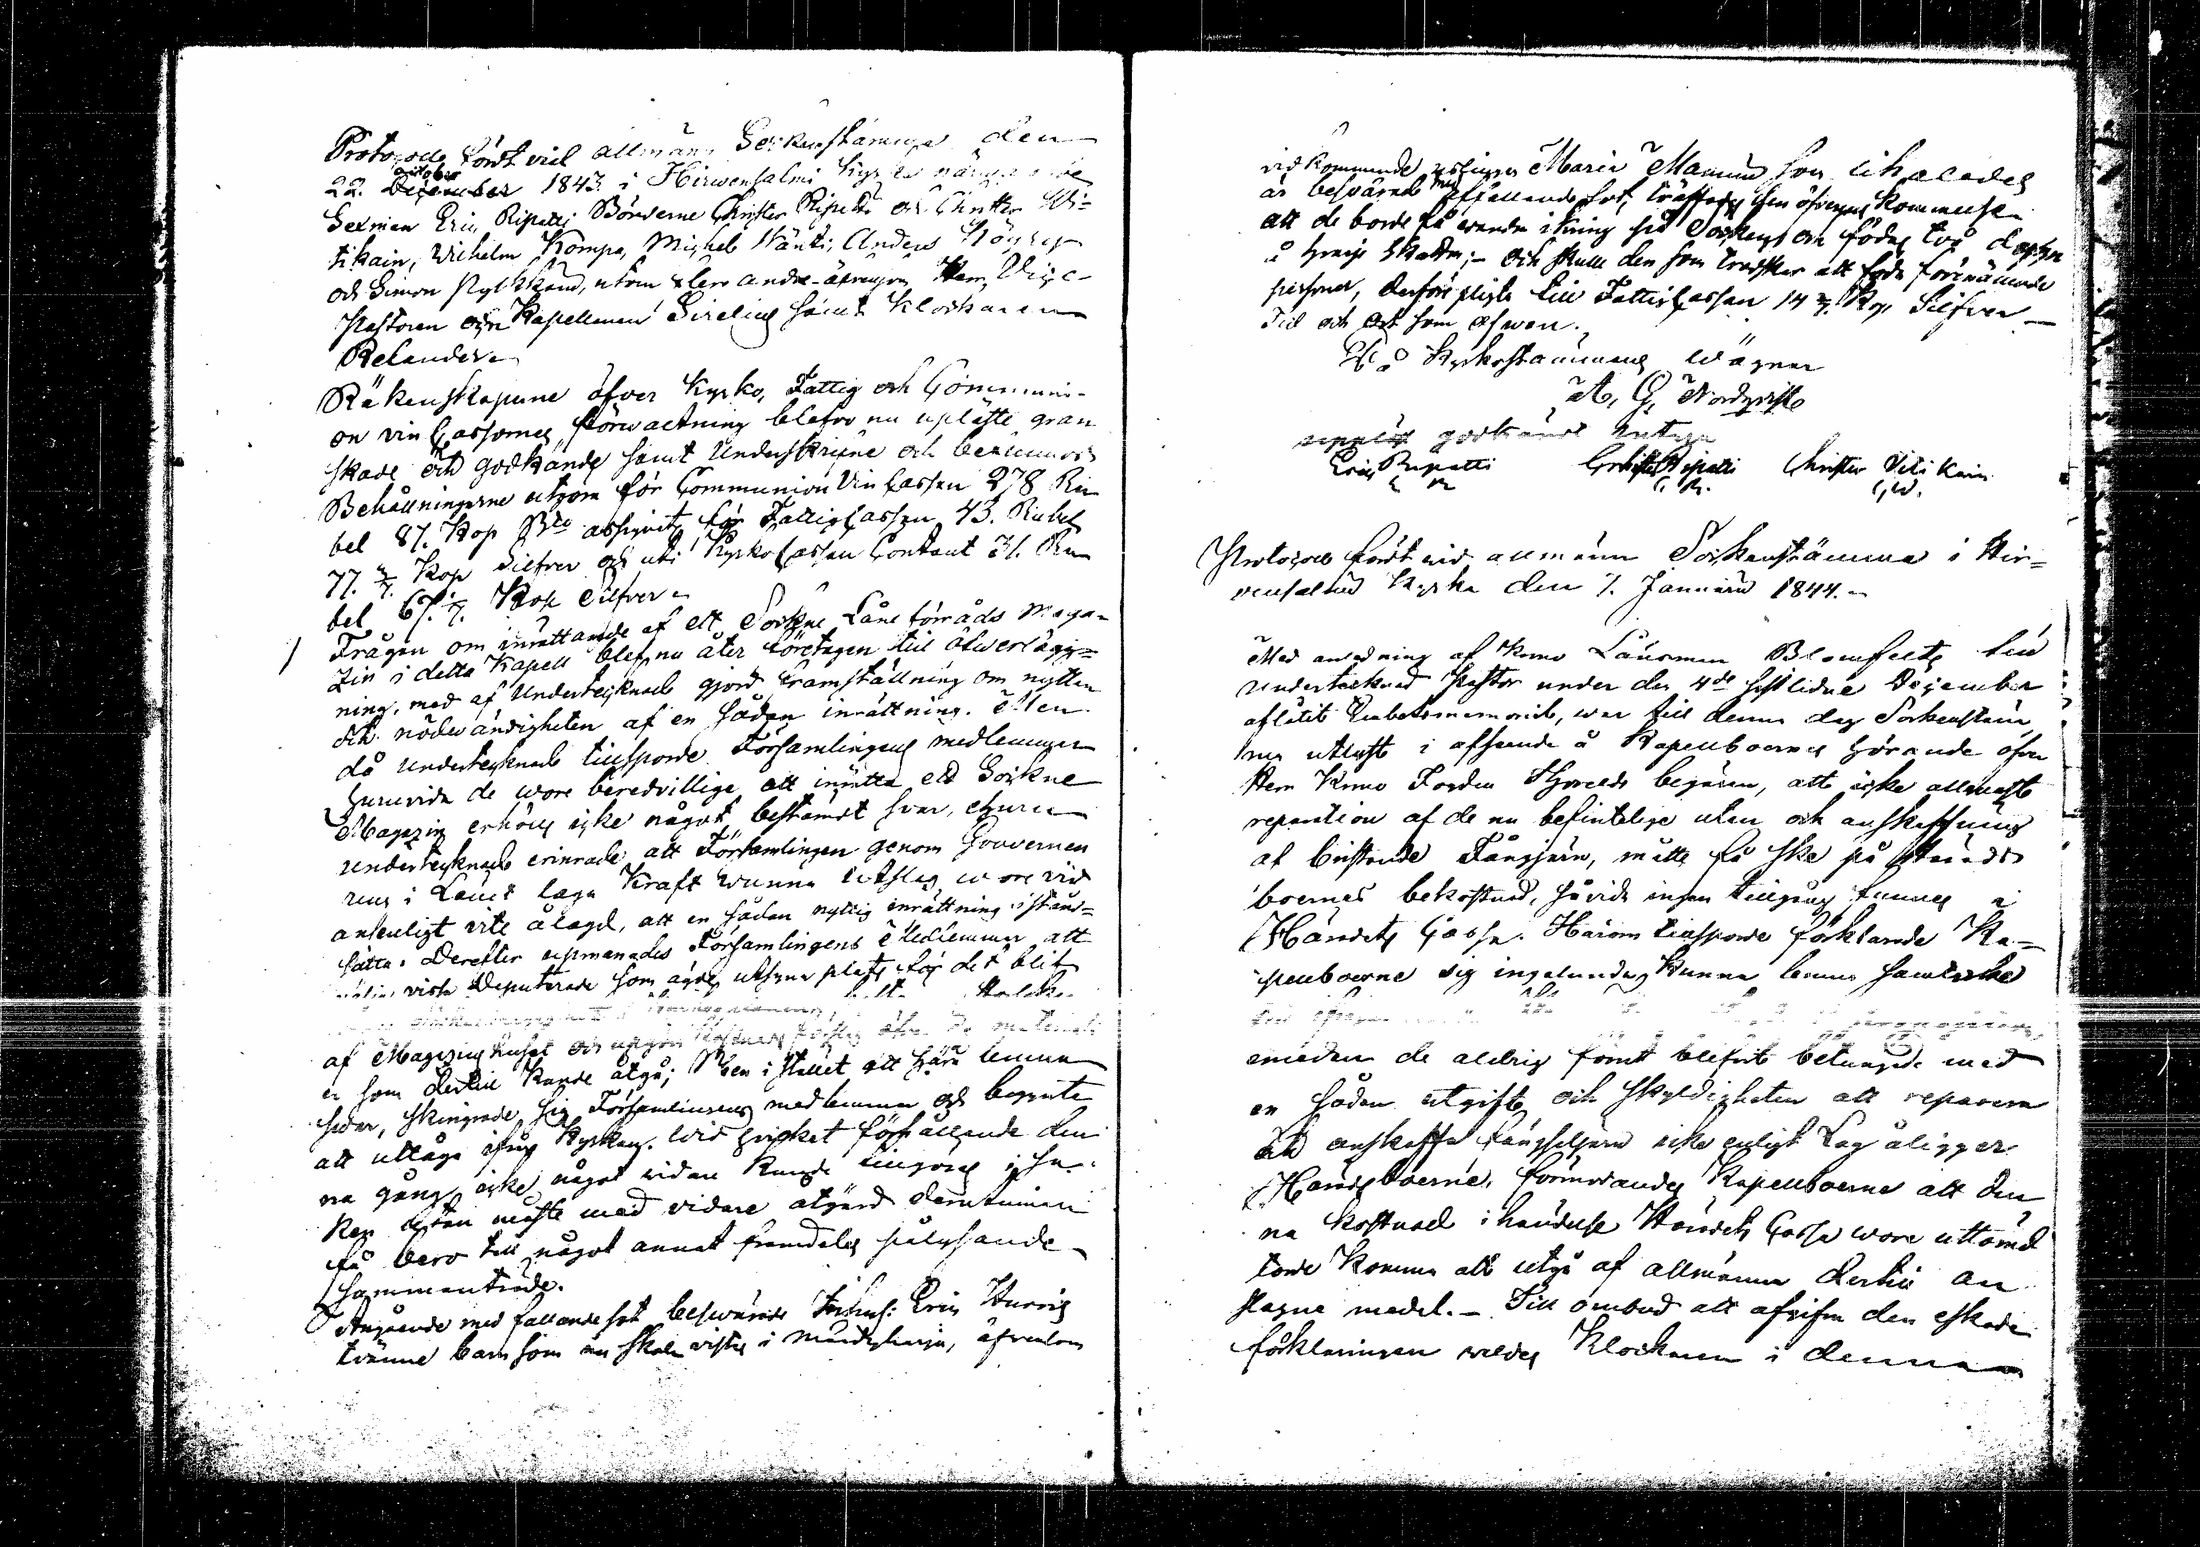 Protocoll fördt vid allmän Sockenstämma den
22. December october 1843 i Hirwensalmi Kyrka närvarande
Sexman Eric Ripatti Bönderne Christer Ripatti och Christer Wi=
tikain, Wilhelm Kompa, Michel Hänti, Anders
och Simon Pylkkänd, utom flere andre äfvensom Herr Vice
Pastoren och Kapellanen Sirelius samt Klockaren
Relander.
Räkenskaperne öfver Kyrko, Fattig och Communi-
on vin Cassornes förvaltning blefvo nu upläste gran
skade och godkände samt Underskrifne och
Behållningarne utgöra för Communion Vin Cassan 278 Ru
bel 87. Kop Bco assignat, för Fattig Cassan 43. Rubel
77. Kop Silfver och uti Kyrko Cassan Contant 31. Ru
bel 67. Kop Silfver.
Frågan om inrättande af ett Sockne Låne förråds Maga-
zin i detta Kapell blef nu åter företagen till öfwerlägg=
ning, med af Undertecknad gjord framställning om nyttan
och nödvändigheten af en sådan inrättning. Men
då Undertecknad tillsporde Församlingens medlemmar
huruvida de wore beredvillige att inrätta ett Sockne
Magazin erhöls icke något bestämdt svar, ehuru
Undertecknad erinrade att Församlingen genom Gouverneu
rens i Länet laga Kraft wunna Utslag wore vid
ansenligt vite ålagd, att en sådan nyttig inrättning istånd=
sätta. Derefter upmanades Församlingens Medlemmar att
välja vissa Deputerade som ägde utsyna plats för det blif
af Magazins huset och uppgöra Kostnads förslag öfver de materiali
er som dertill kunde åtgå; Men i stället att härå lemna
svar, skingrade sig Församlingens medlemmar och begynte
att uttåga ifrån Kyrkan. Wid hvilket förhållande den
na gång icke något widare kunde tillgöras i sa-
ken utan måste med vidare åtgärd derutinnan
få bero till något annat framdeles pålysande
sammanträde.
Angående med fallandesot beswärade Inhys: Eric
tvänne barn som nu skola vistas i Mändyharju, äfvensom
vidkommande Maria Manninen som likaledes
är besvärad med fallandesot, träffades den öfverens kommelse
att de borde få wandra ikring hela Socknen och födas två dagar
å hvarje Skattm; och skulle den som tredskar att föda förenämnde
personer, derföre pligta till Fattig Cassan 14 2/7 Kop Silfver
Tid och Ort som ofwan.
På Kyrkostämmans wägnar
A. G. Nordqvist
uppläst godkändt
Eric Ripatti Christer Ripatti Christer Vitikain
Protocoll fördt wid allmänn Sockenstämma i Hir=
vensalmi Kyrka den 7. Januarii 1844.
Med anledning af Krono Länsman Blomfeldts till
Undertecknad Pastor under den 4de sistlidne December
aflåtit Embetsmemorial, war till denna dag Sockenstäm
ma utlyst i afseende å Kapellboernes hörande öfver
Herr Krono Fogden Thorelds begäran, att icke allenast
reparation af de nu befintelige utan ock anskaffning
af bristande Fångjärn, måtte få ske på Härads
boernes bekostnad, såvida ingen tillgång funnes i
Häradets Cassa. Härom tillsporde förklarade Ka-
pellboerne sig ingalunda kunna lemna samtycke
emedan de aldrig förut blifvit betungade med
en sådan utgift och skyldigheten att reparera
och anskaffa fängseljern icke enligt Lag åligger
Häradsboerne, förmodandes Kapellboerne att den
na kostnad i händelse Häradets Cassa wore uttömd
torde komma att utgå af allmänna dertill an
slagne medel. Till ombud att afgifva den äskade
förklaringen valdes Klockaren i denna